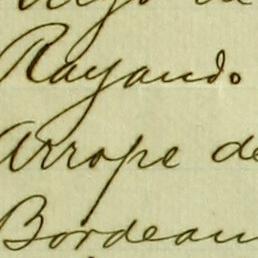 Rayando
Arrope de
Bordeau